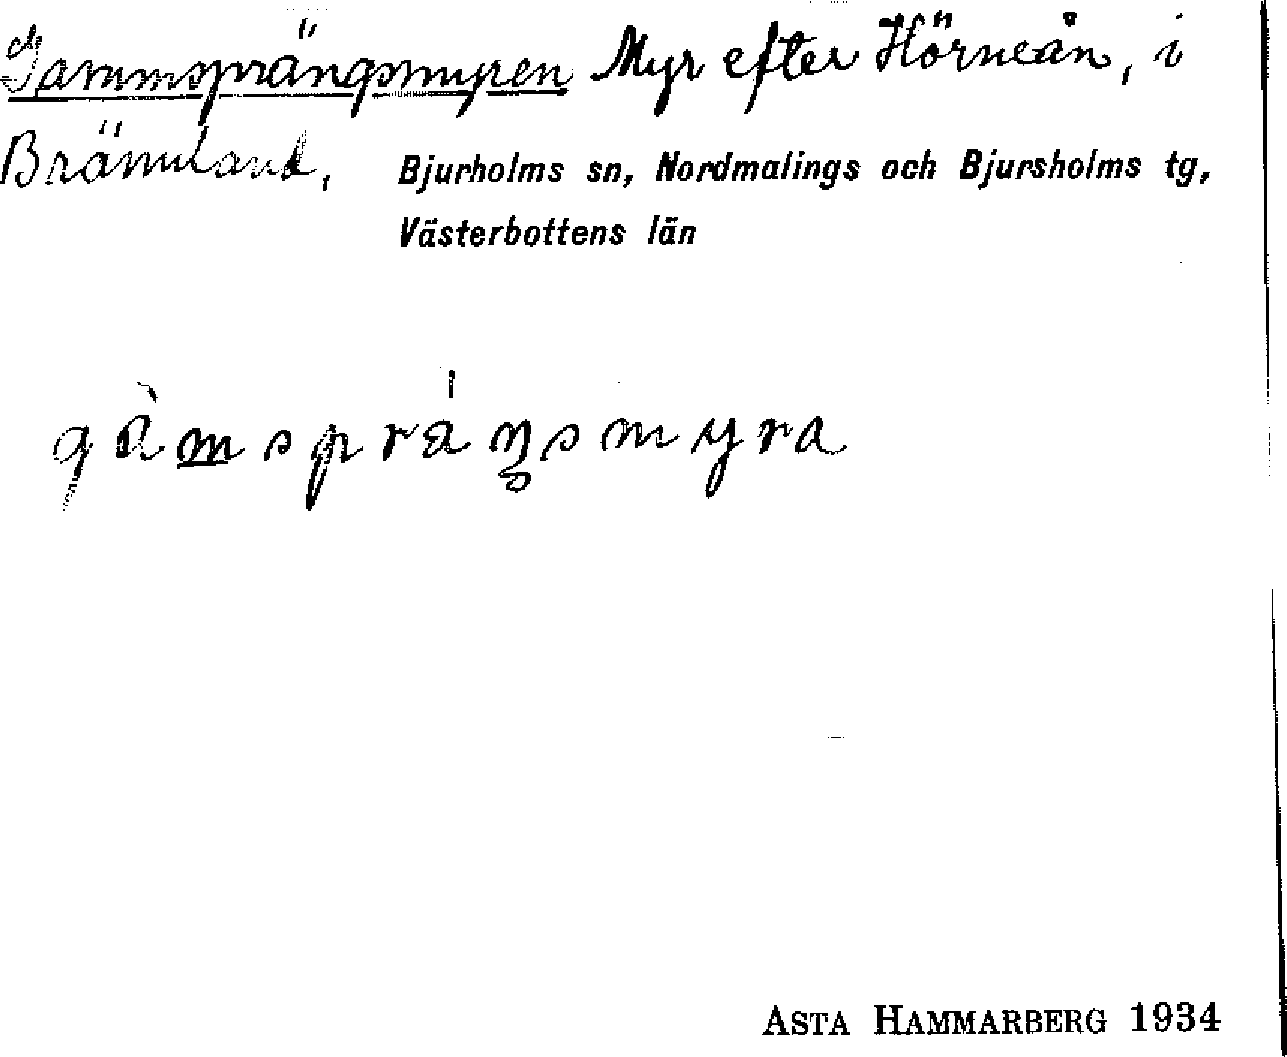 Gammsprängsmyren Myr efter Hörneån, i
Brännland, Bjurholms sn, Nordmalings och Bjursholms tg,
Västerbottens län
gàmspráŋ̥smyra
ASTA HAMMARBERG 1934